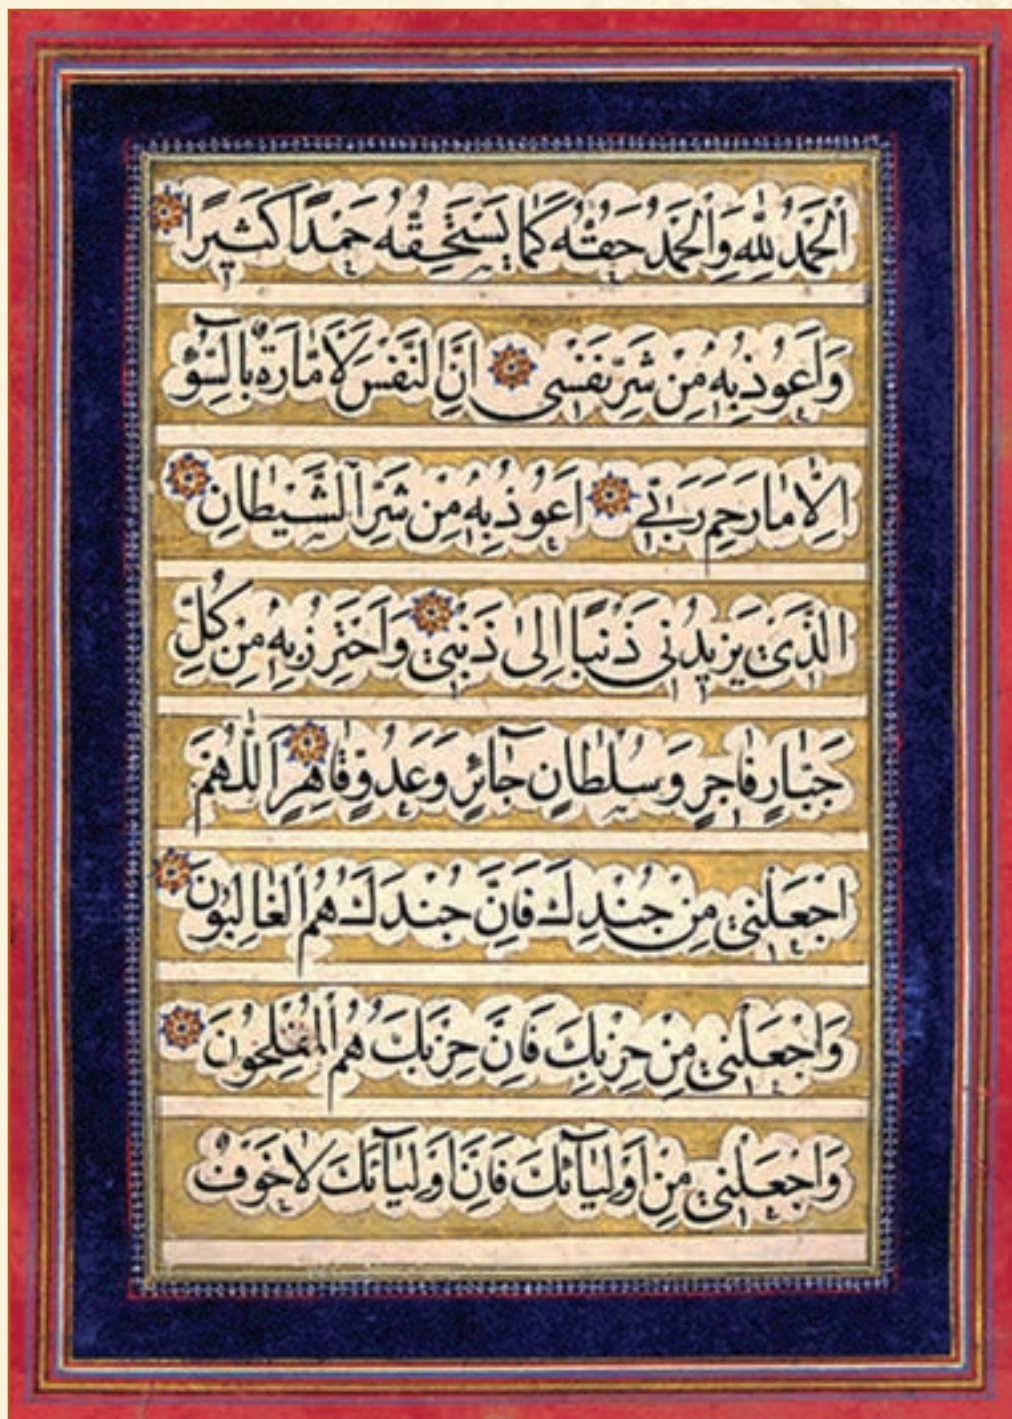 اَلْحَمْدُ لِلّٰهِ وَالْحَمْدُ حَقُّهُ كَمَا يَسْتَحِقُّهُ حَمْدًا كَثيرًا
وَاَعُوذُ بِهِ مِنْ شَرِّ نَفْسى اِنَّ النَّفْسَ لَاَمَّارَةٌ بِالسُّوٓءِ
اِلَّا مَا رَحِمَ رَبّى اَعُوذُ بِهِ مِنْ شَرِّ الشَّيْطَانِ
الَّذى يَزيدُنى ذَنْبًا اِلٰى ذَنْبى وَاَحْتَرِزُ بِهِ مِنْ كُلِّ
جَبَّارٍ فَاجِرٍ وَسُلْطَانٍ جَآئِرٍ وَعَدُوٍّ قَاهِرٍ اَللّٰهُمَّ
اجْعَلْنى مِنْ جُنْدِكَ فَاِنَّ جُنْدَكَ هُمُ الْغَالِبُونَ
وَاجْعَلْنى مِنْ حِزْبِكَ فَاِنَّ حِزْبَكَ هُمُ الْمُفْلِحُونَ
وَاجْعَلْنى مِنْ اَوْلِيَآئِكَ فَاِنَّ اَوْلِيَآئَكَ لَا خَوْفٌ